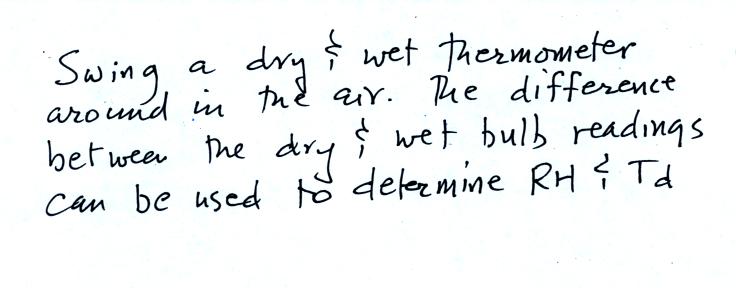 Swing a dry & wet thermometer
around in the air. The difference
between the dry & wet bulb readings
can be used to determine RH & Td